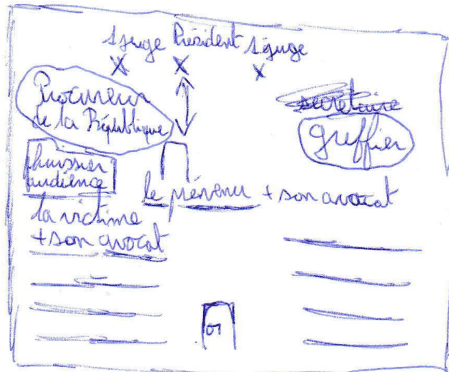 1 juge Président 1 juge
X X X
Procureur
de la République
secrétaire
greffier
huissier
audience
le prévenu + son avocat
la victime
+ son avocat